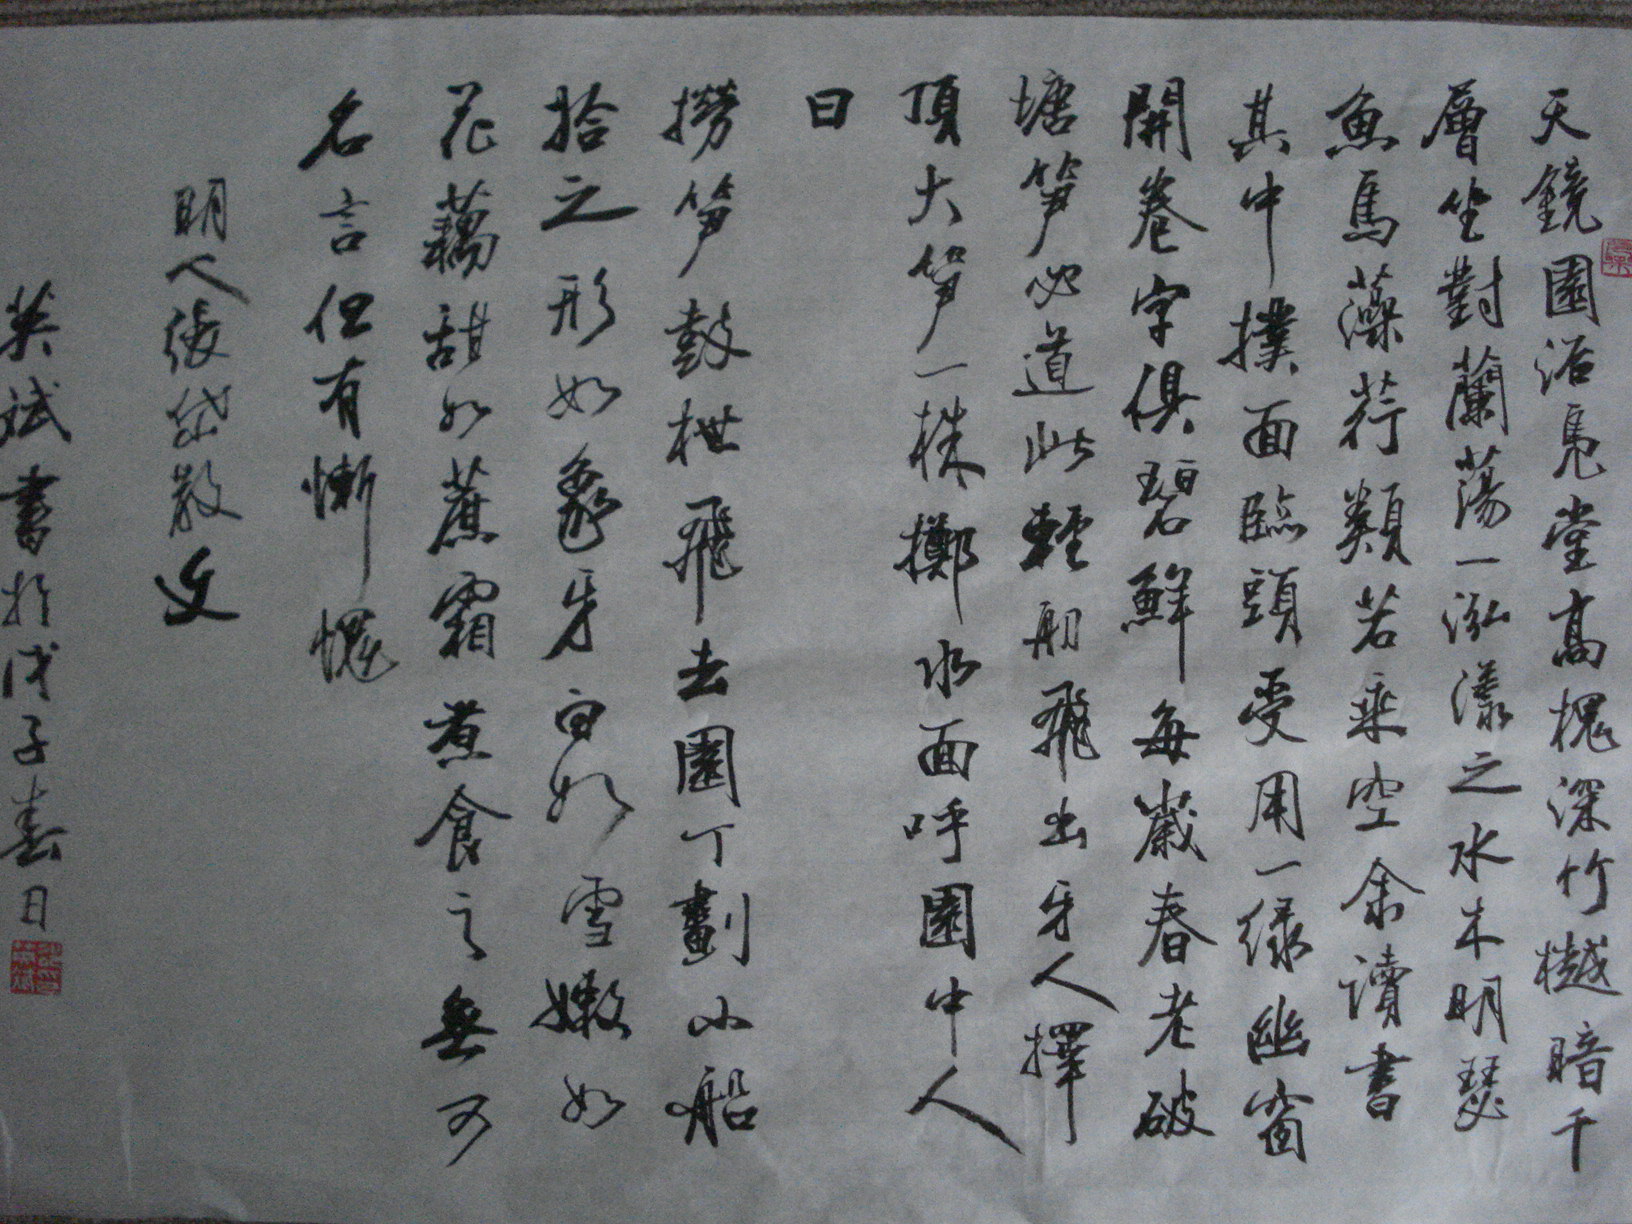 天鏡園浴鳧堂高槐深竹樾暗千
層坐對蘭蕩一泓漾之水木明瑟
魚鳥藻荇類若乘空余讀書
其中撲面臨頭受用一綠幽窗
開卷字俱碧鮮每歲春老破
塘筍必道此輕舠飛出牙人擇
頂大筍一株擲水面呼園中人
曰
撈筍鼓枻飛去園丁劃小船
拾之形如象牙白如雪嫩如
花藕甜如蔗霜煮食之無可
名言但有慚愧
明人張岱散文
英斌書於戊子春日